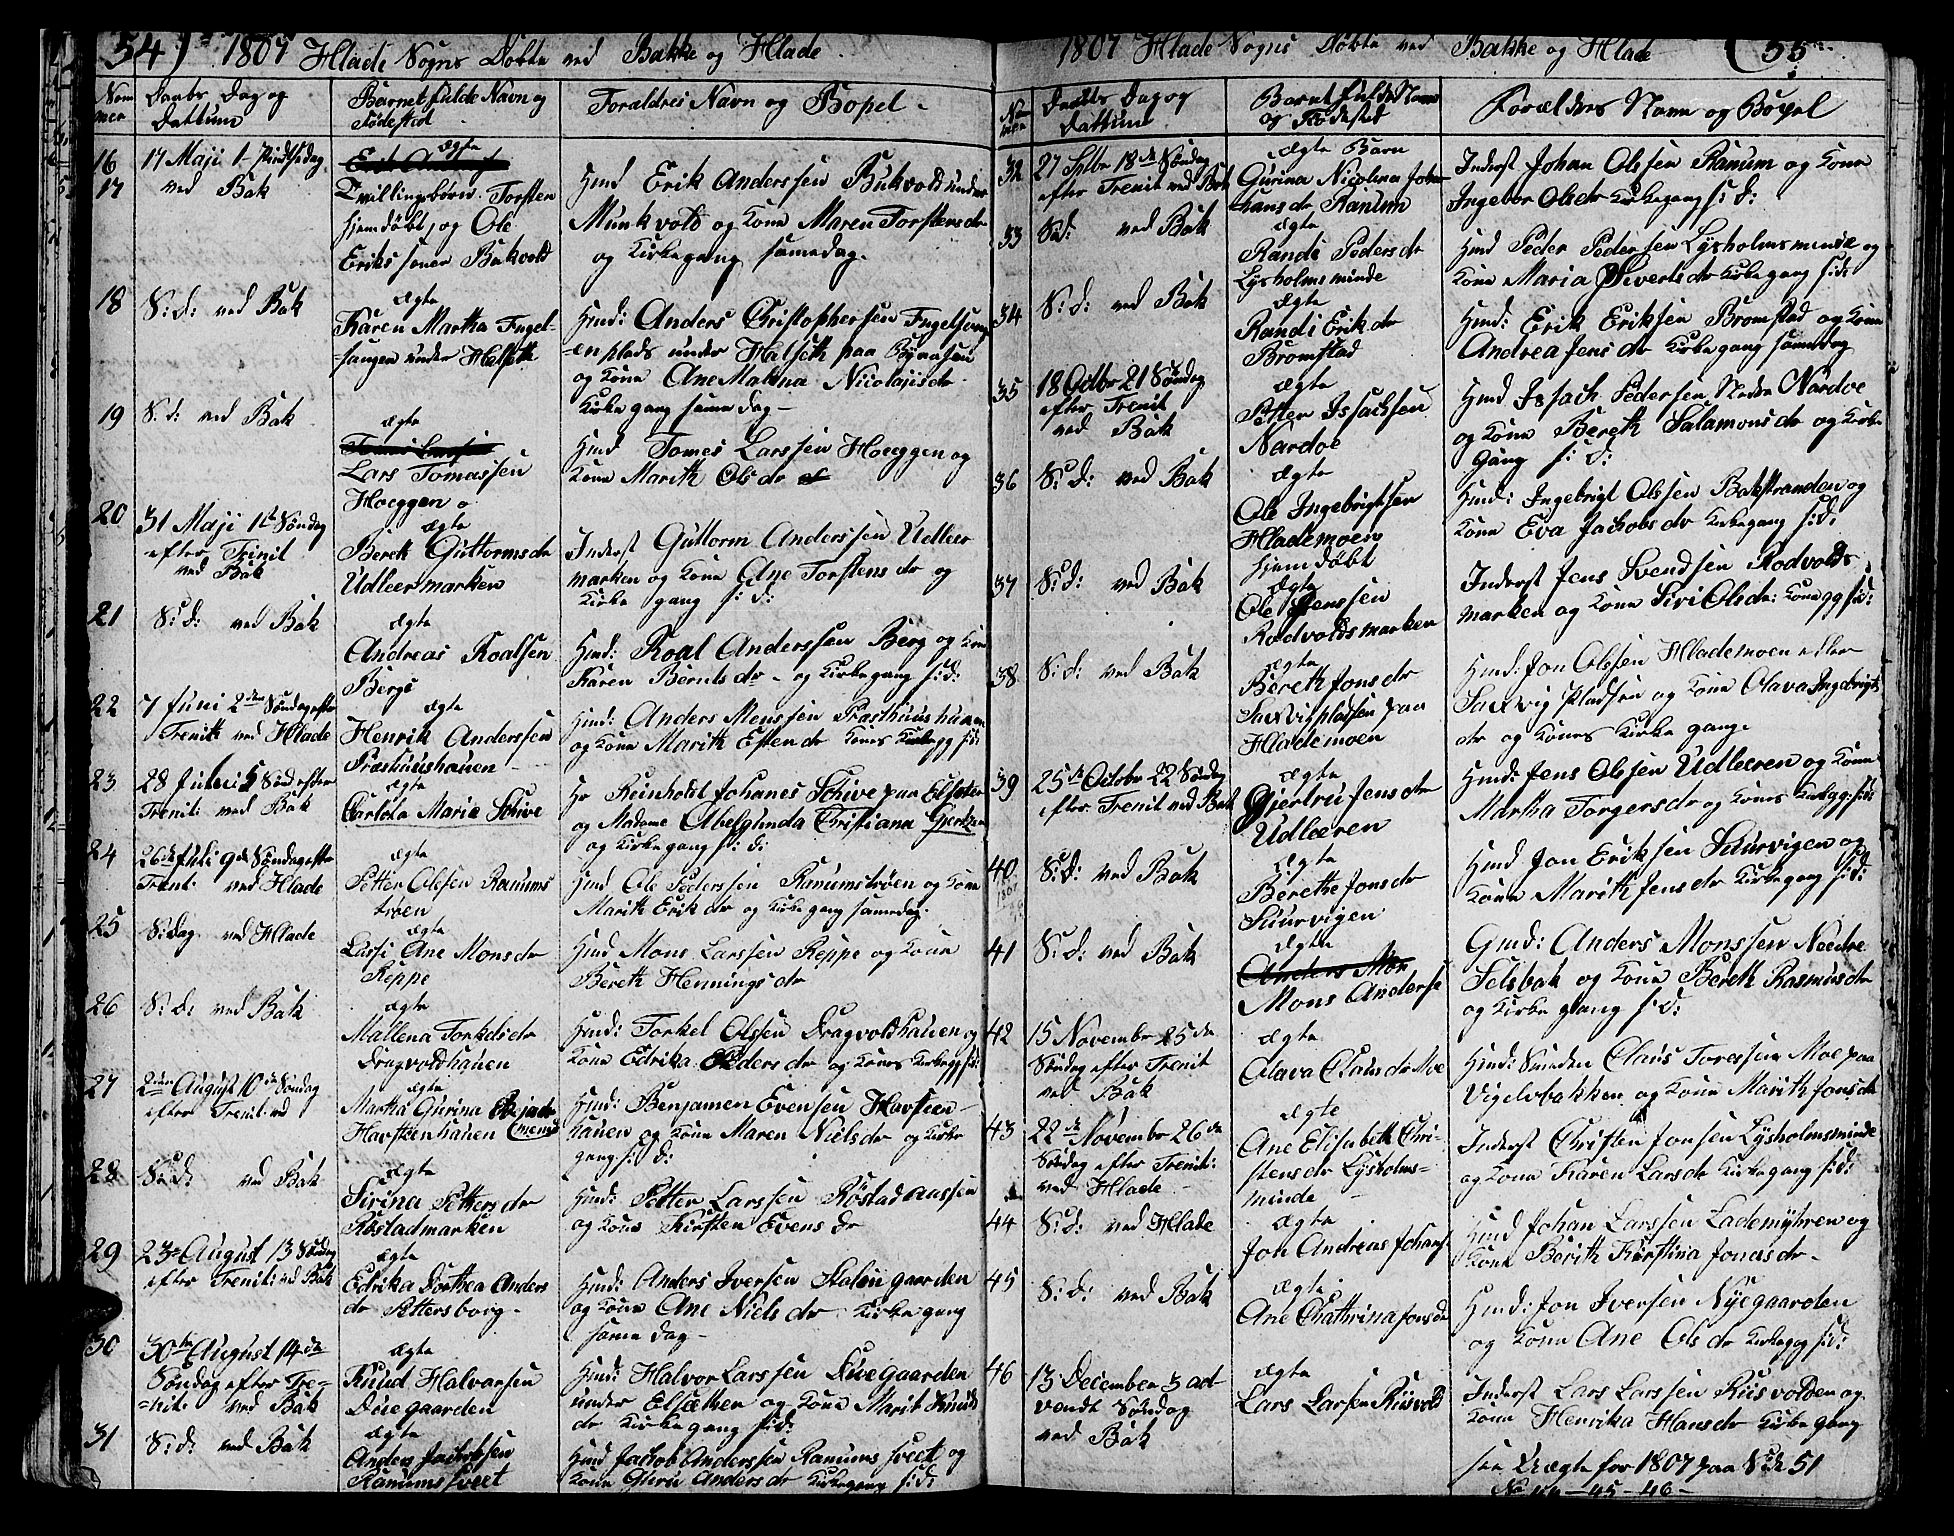 54) 1807 Hlade Sogns Døbte ved Bakke og Hlade
Nom mer
Daabs Dag og Dattum
Barnets fulde Navn og Fødested
Foraldres Navn og Bopel
16 17 Maji 1 Pindsedag ved Bak
17
ægte
Tvillingebørn Torsten
hjemdøbt, og Ole
Eriks sener Bukvold
Hmd Erik Anderssen Bukvold under
Munkvold og Kone Maren Torstensdr
og Kirkegang samedag.
18 S: d: ved Bak
ægte
Karen Martha Fugel-
sangen under Halseth
Hmd: Anders Christophersen Fugelsang
en plads under Halseth paa Bynæsset
og Kone Ane Malena Nicolajsdr
Kirkegang same dag
19 S: d: ved Bak
ægte
Lars Tomassen
Hoeggen
Hmd Tomes Larssen Hoeggen og
Kone Marith Olsdr
20 31 Maji 1te Søndag
efter Trinit
ved Bak
ægte
Bereth Guttormsdr
Udleermarken
Inderst Guttorm Anderssen Udleer
marken og Kone Ane Torstensdr og
Kirkegang s: d:
21 S: d: ved Bak
ægte
Andreas Roalsen
Berge
Hmd: Roal Anderssen Berg og Kone
Karen Berntsdr og Kirkegang s: d:
22 7 Juni 2den Søndag efter
Trenit ved Hlade
ægte
Henrik Anderssen
Præsthuushauen
Hmd: Anders Monssen Præsthuushauen
og Kone Marith Estendr Kones Kirkegg s: d:
23 28 Juni 5 Sønd efter
Trenit: ved Bak
ægte
Carlota Maria Schive
Hr Reinholdt Johanes Schive paa Elsæter
og Madame Abelgunda Christiana Gertzen
og Kirkegang s: d:
24 26de Juli 9de Søndag efter
Trenit: ved Hlade
ægte
Petter Olsen Ranums
trøen
Hmd Ole Pederssen Ranumstrøen og Kone
Marith Erikdr og Kirkegang samedag.
25 S: dag ved Hlade
ægte
Lussi Ane Monsdr
Reppe
Hmd Mons Larssen Reppe og Kone
Bereth Henningsdr
26 S: d: ved Bak
ægte
Mallena Torkelsdr
Dragvoldhauen
Hmd: Torkel Olssen Dragvoldhauen og
Kone Edrika Pedersdr og Kones Kirkegg s: d:
27 2den August 10de Søndag
efter Trenit: ved
ægte
Martha Gurina Benja
Havsteenhauen
Hmd: Benjamen Evensen Havsteen-
hauen og Kone Maren Nielsdr og Kirke
gang s: d:
28 S: d: ved Bak
ægte
Sirina Pettersdr
Rostadmarken
Hmd: Petter Larssen Rostadnæssen
og Kone Kirsten Evensdr
29 23de August 13 Søndag
efter Trenit: ved Bak
ægte
Edrika Dorthea Anders
dr Pettersborg
Hmd: Anders Iversen Stalingaarden
og Kone Ane Nielsdr Kirkegang
same dag
30 30te August 14de
Søndag efter Tre-
nit: ved Bak
ægte
Knud Halvorsen
Duegaarden
Hmd: Halvor Larssen Duegaarden
under Elsæthen og Kone Marit Knuds
dr Kirkegang s: d:
31 S: d: ved Bak
ægte
Anders Jachobssen
Ranumsveet
Hmd Jachob Anderssen Ranumsveet og
Kone Guru Andersdr Kirkegang s: d:
1807 Hlade Sogns Døbte ved Bakke og Hlade (55
Daabs Dag og Dattum
Barnets fulde Navn og Fødested
Forælders Navn og Bopel
32 27 Sptbr 18de Søndag
efter Trenit ved Bak
ægte Barn
Gurina Nicolina Johan
hansdr Ranum
Inderst Johan Olssen Ranum og Kone
Ingebor Olsdr Kirkegang s: d:
33 S: d: ved Bak
ægte
Randi Pedersdr
Lysholmsminde
Hmd Peder Pedersen Lysholmsminde og
Kone Maria Siversdr Kirkegang s: d:
34 S: d: ved Bak
ægte
Randi Erikdr
Bromstad
Hmd: Erik Eriksen Bromstad og Kone
Andrea Jensdr Kirkegang samedag
35 18 Octbr 21 Søndag
efter Trenit
ved Bak
ægte
Petter Issachsen
Nardoe
Hmd Issach Pedersen Nedre Nardoe
og Kone Bereth Salamonsdr og Kirke
gang s: d:
36 S: d: ved Bak
ægte
Ole Ingebrigtsen
Hlademoen
hjemdøbt
Hmd: Ingebrigt Olssen Bakstranden og
Kone Eva Jachobsdr Kirkegang s: d:
37 S: d: ved Bak
ægte
Ole Jenssen
Rodvoldsmarken
Inderst Jens Svendsen Rodvolds
marken og Kone Siri Olsdr: Kone gg s: d:
38 S: d: ved Bak
ægte
Bereth Jonsdr
Saxvigpladsen paa
Hlademoen
Hmd: Jon Olssen Hlademoen eller
Saxvig Pladsen og Kone Olava Ingebrigts
dr og Kones Kirkegang.
39 25de October 22 Søndag
efter Trenit ved Bak
ægte
Gjertru Jensdr
Udleeren
Hmd: Jens Olssen Udleeren og Kone
Martha Torgersdr og Kones Kirkegg: s: d:
40 S: d: ved Bak
1807
ægte
Berethe Jonsdr
Suurvigen
Hmd Jon Eriksen Suurvigen og
Kone Marith Jensdr Kirkegang s: d:
41 S: d: ved Bak
ægte
Mons Anderse
Gmd: Anders Monssen Nedre
Selsbak og Kone Bereth Rasmusdr
og Kirkegang s: d:
42 15 November 25de
Søndag efter Trenit
ved Bak
ægte
Olava Clausdr Moe
Hmd: Smeden Claus Toressen Moe paa
Vigelvbakken og Kone Marith Jonsdr
43 22de November 26de
Søndag efter Trenit:
ved Hlade
ægte
Ane Elisabeth Chri-
stensdr Lysholms-
minde
Inderst Christen Jonsen Lysholmsminde
og Kone Karen Larsdr Kirkegang s: d:
44 S: d: ved Hlade
ægte
Jon Andreas Johans
Hmd Johan Larssen Lademyhren og
Kone Berith Kirstina Jonasdr
45 S: d: ved Bak
ægte
Ane Chathrina Jonsdr
Hmd: Jon Iversen Nyegaarden
og Kone Ane Olsdr Kirkegg s: d:
46 13 December 3 ad-
vendt Søndag
ved Bak
ægte
Lars Larsen Riisvold
Inderst Lars Larssen Riisvolden og
Kone Henrika Hansdr Kirkegang
see Uægte for 1807 paa Side 51
No 44 – 45 – 46 –